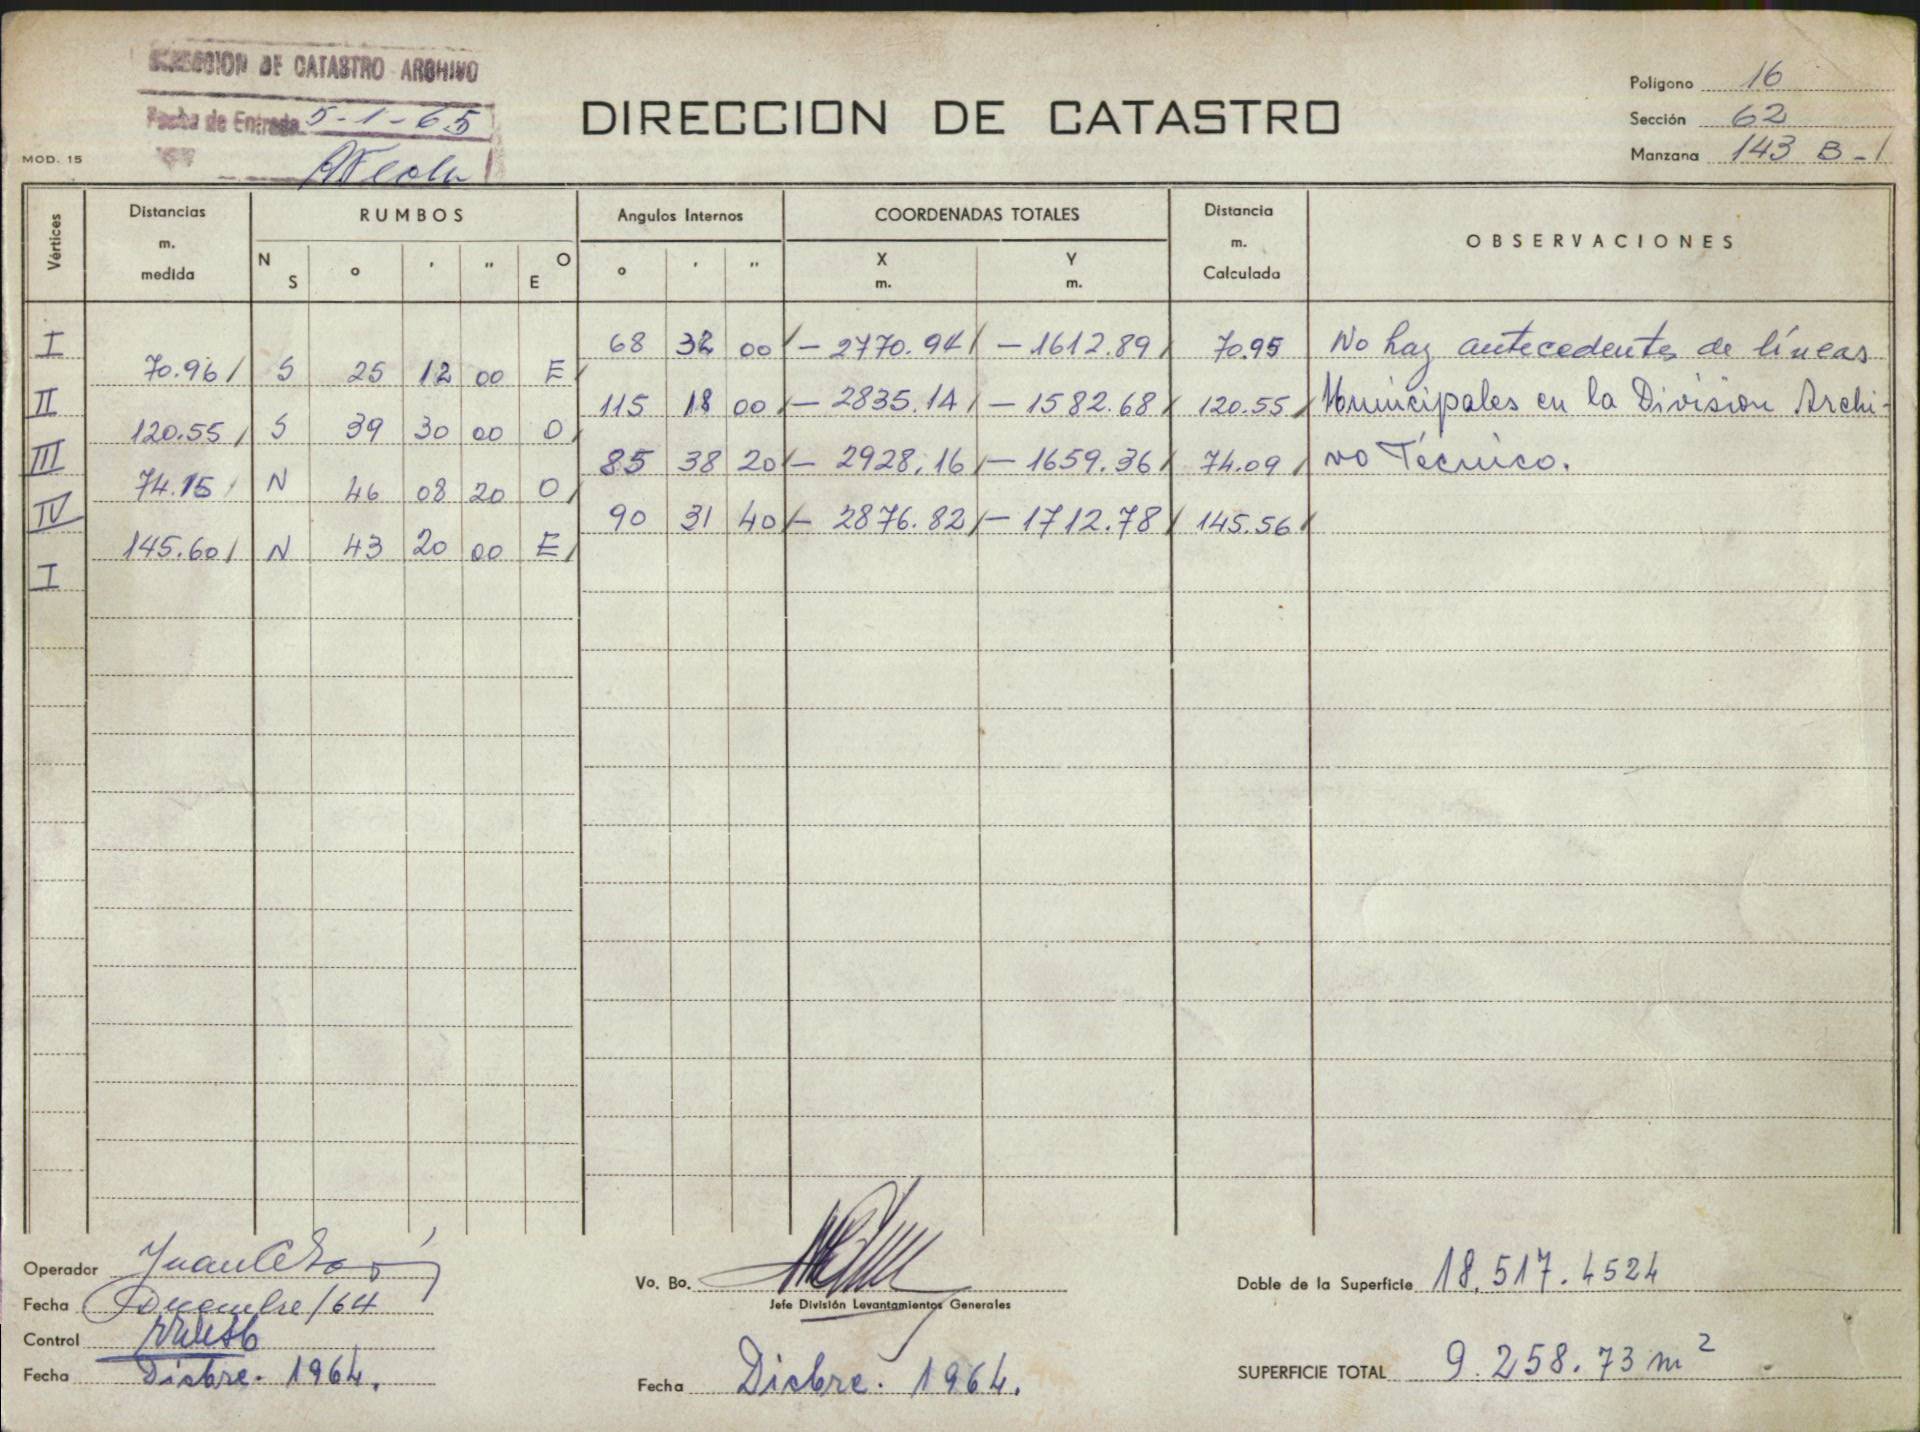 DIRECCION DE CATASTRO ARCHIVO
Fecha de Entrada 5-1-65
MOD. 15
DIRECCION DE CATASTRO
Polígono 16
Sección 62
Manzana 143 B-1
Vértices
Distancias m. medida
RUMBOS
N S ° ' " O E
Angulos Internos
° ' "
COORDENADAS TOTALES
X m. Y m.
Distancia m. Calculada
OBSERVACIONES
I 68 32 00 - 2770.94 - 1612.89 70.95 No hay antecedentes de líneas
70.96 S 25 12 00 E
II 115 18 00 - 2835.14 - 1582.68 120.55 Municipales en la Division Archi-
120.55 S 39 30 00 O
III 85 38 20 - 2928.16 - 1659.36 74.09 vo Técnico.
74.15 N 46 08 20 O
IV 90 31 40 - 2876.82 - 1712.78 145.56
145.60 N 43 20 00 E
I
Operador Juan
Fecha Diciembre/64
Control
Fecha Dicbre. 1964.
Vo. Bo.
Jefe División Levantamientos Generales
Fecha Dicbre. 1964.
Doble de la Superficie 18.517.4524
SUPERFICIE TOTAL 9.258.73 m²